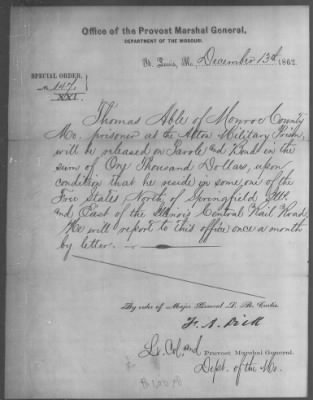 Office of the Provost Marshal General,
DEPARTMENT OF THE MISSOURI.
St. Louis, Mo., December 13th, 1862
SPECIAL ORDER.
No 147.
XXI.
Thomas Ables of Monroe County
Mo. prisoner at the Alton Military Prison,
will be released on Parole and Bond in the
sum of One Thousand Dollars, upon
condition that he reside in some one of the
Free States North of Springfield Ills.
and East of the Illinois Central Rail Road,
He will report to this office once a month
by letter.
By order of Major General S. R. Curtis.
F. A. Dick
Lt. Col. and Provost Marshal General.
Dept. of the Mo.